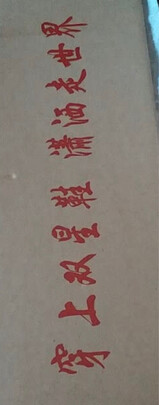 穿上双星鞋 潇洒走世界